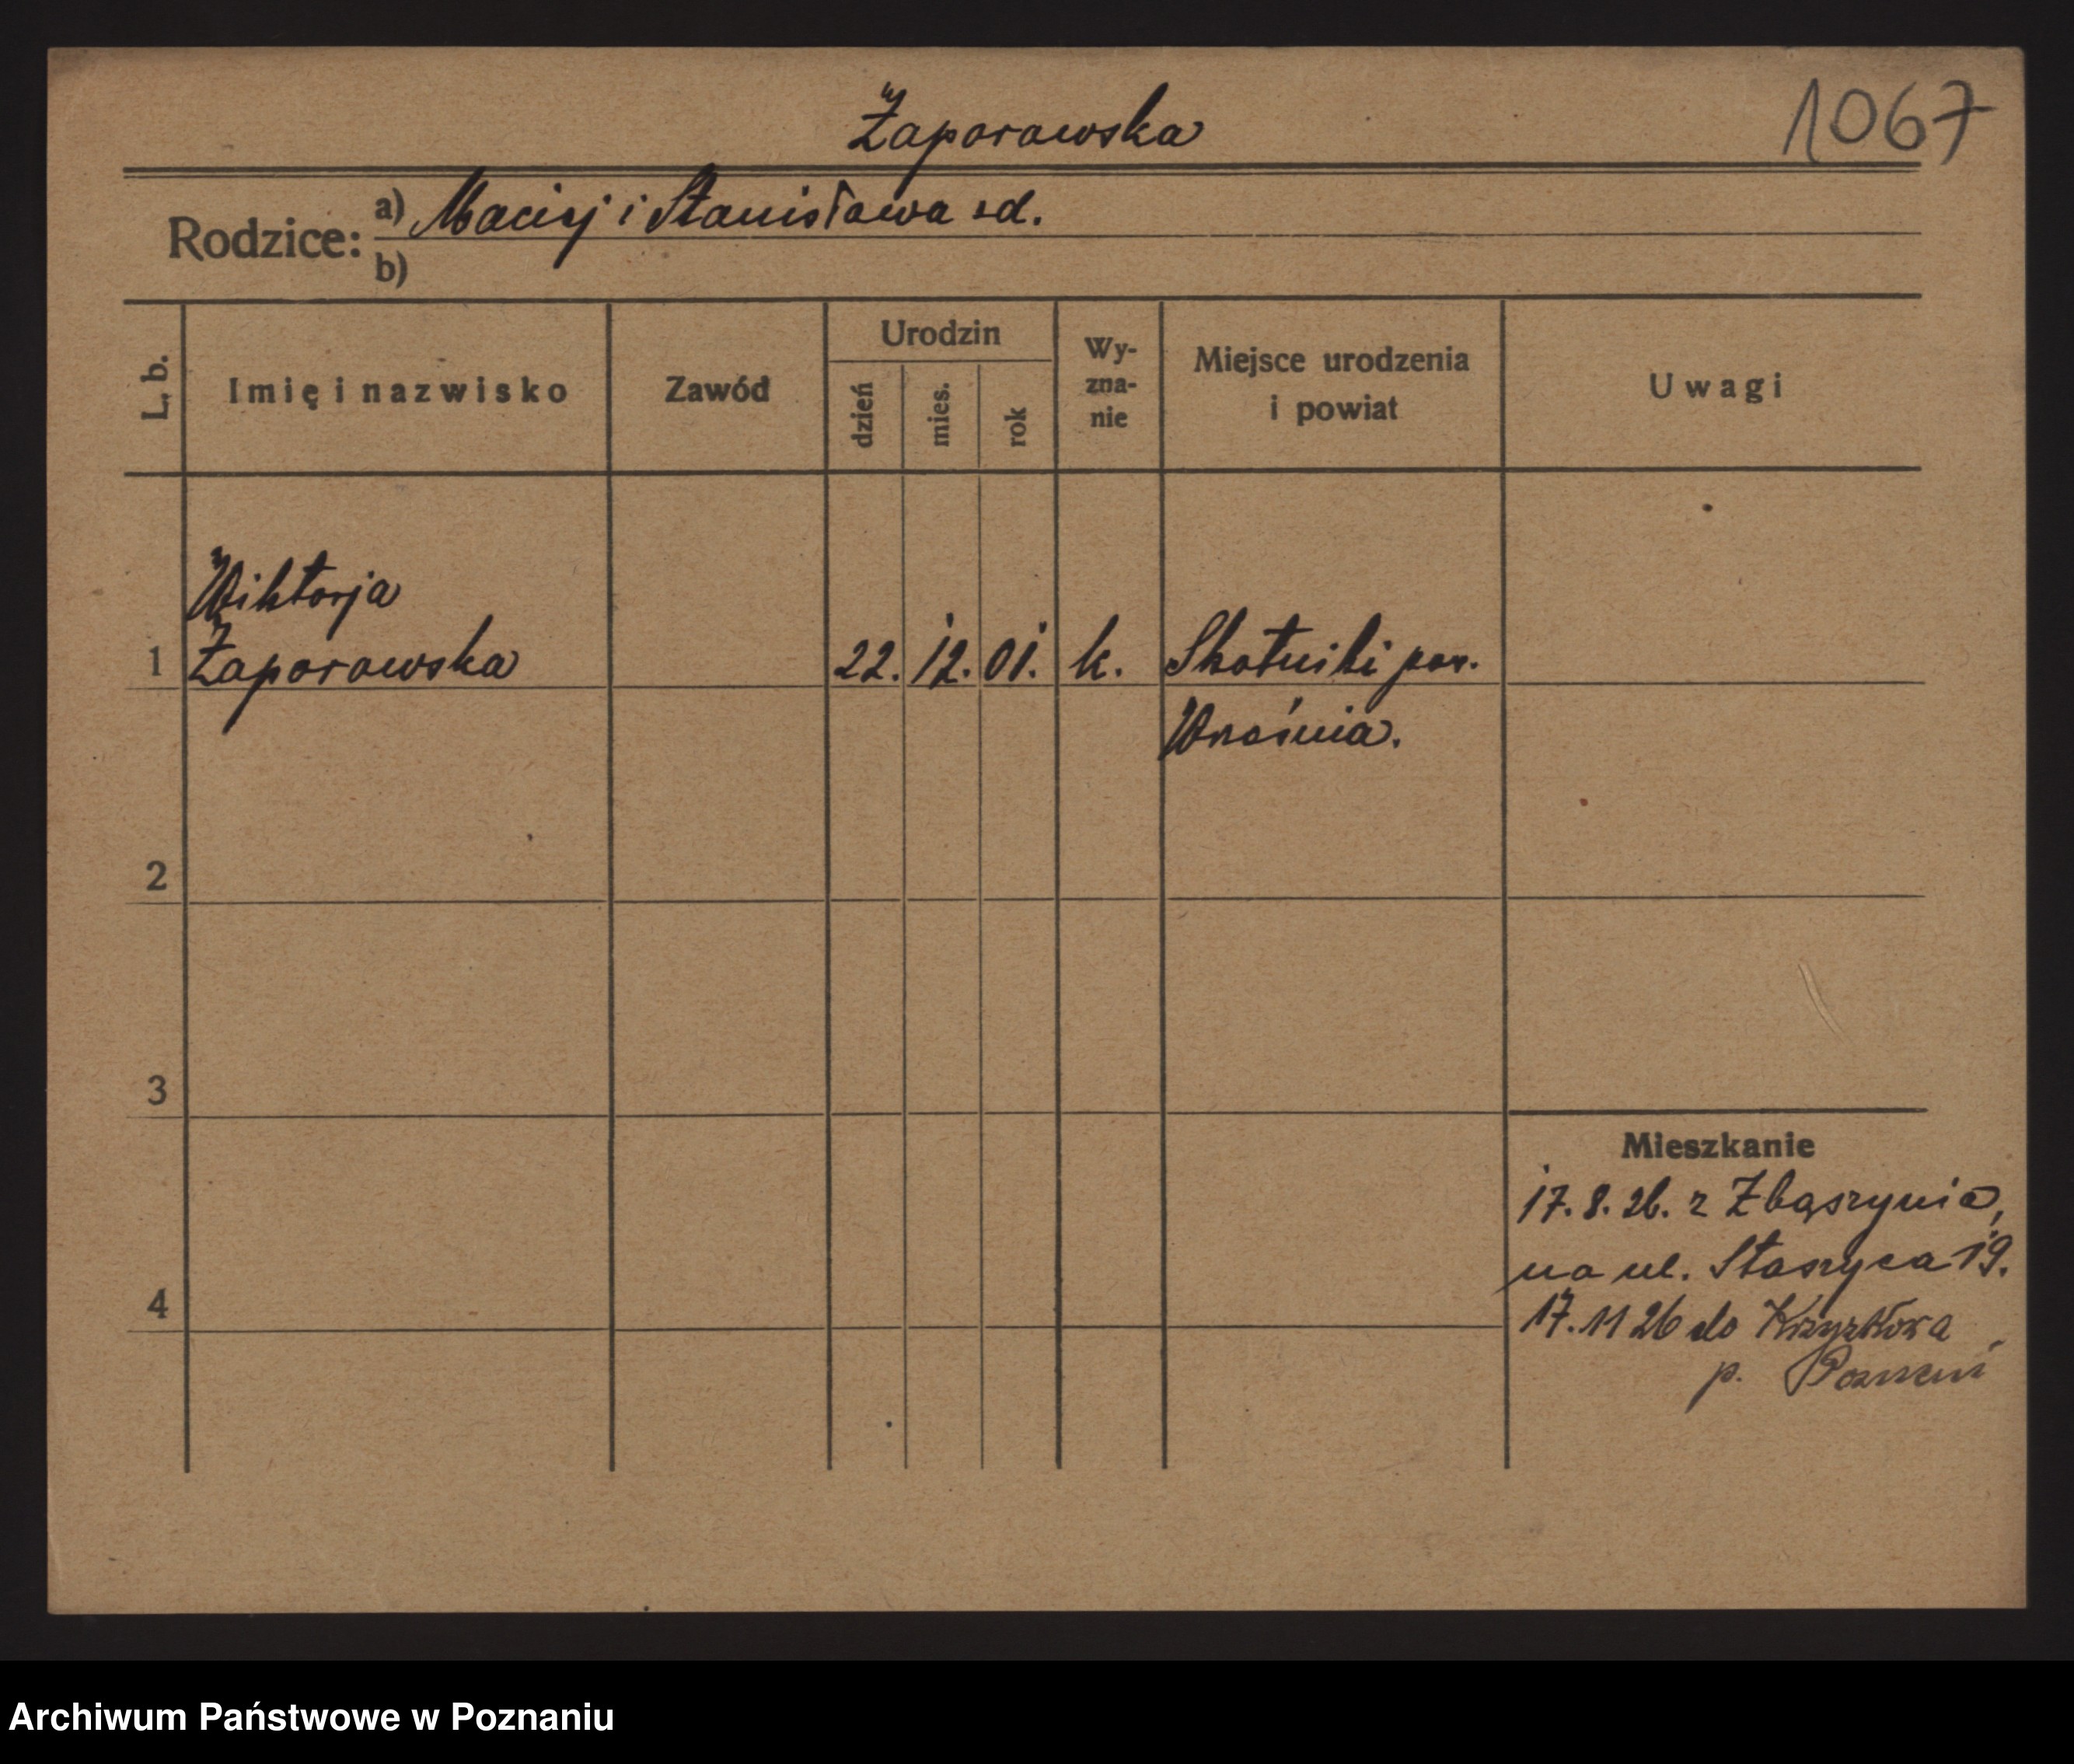 Zaporowska
1067
Rodzice: a) Maciej i Stanisława zd.
b)
L. b.
Imię i nazwisko
Zawód
Urodzin
dzień
mies.
rok
Wy-
zna-
nie
Miejsce urodzenia
i powiat
Uwagi
Wiktorja
1 Zaporowska 22. 12. 01. k. Skotniki pow.
Wrośnia.
2
3
4
Mieszkanie
17.8.26. z Zbąszynia,
na ul. Staszyca 19.
17.11 26 do
p. Poznań
Archiwum Państwowe w Poznaniu